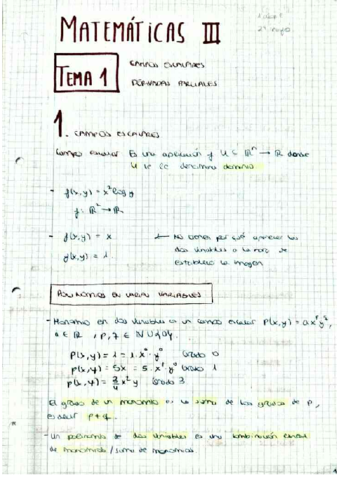 MATEMÁTICAS III
TEMA 1
CAMPOS ESCALARES
DERIVADAS PARCIALES
1. CAMPOS ESCALARES
Campo escalar Es una aplicación f U ⊆ ℝⁿ → ℝ donde
U se le denomina dominio
- f(x,y) = x² log y
f: ℝ² → ℝ
- f(x,y) = x
g(x,y) = 1
← No tienes por qué
dos variables a la hora de
establecer la imagen
POLINOMIOS EN VARIAS VARIABLES
- Monomio en dos variables es un campo escalar P(x,y) = a x^p y^q,
a ∈ ℝ, p, q ∈ ℕ ∪ {0}.
P(x,y) = 1 = 1·x⁰·y⁰ Grado 0
P(x,y) = 5x = 5·x¹·y⁰ Grado 1
P(x,y) = x²y Grado 3
El grado de un monomio es la suma de los grados de P,
es decir p+q.
- Un polinomio de dos variables es una combinación lineal
de monomios / suma de monomios